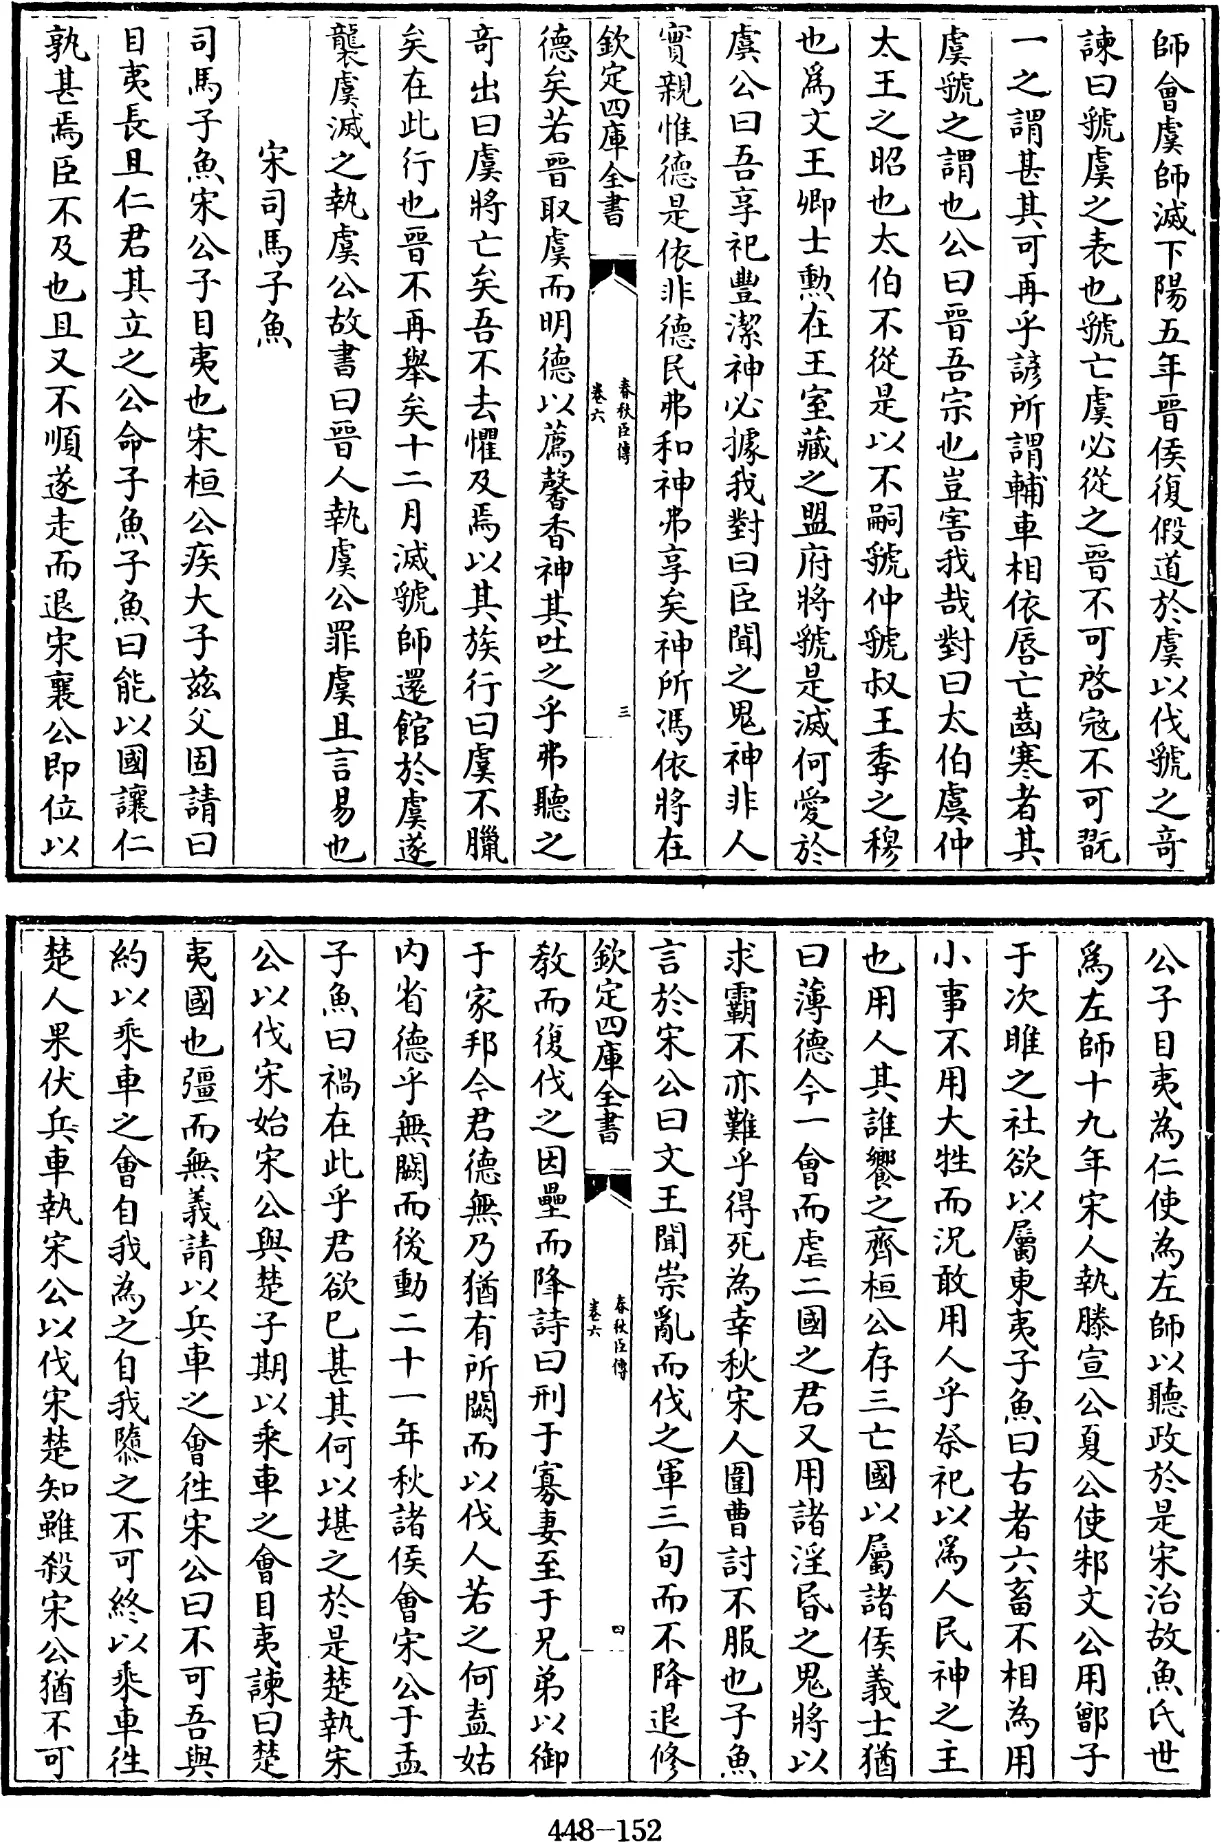 師會虞師滅下陽五年晉侯復假道於虞以伐虢之竒
諫曰虢虞之表也虢亡虞必從之晉不可啓冦不可翫
一之謂甚其可再乎諺所謂輔車相依唇亡齒寒者其
虞虢之謂也公曰晉吾宗也豈害我哉對曰太伯虞仲
太王之昭也太伯不從是以不嗣虢仲虢叔王季之穆
也爲文王卿士勲在王室藏之盟府將虢是滅何愛於
虞公曰吾享祀豐潔神必據我對曰臣聞之鬼神非人
實親惟德是依非德民弗和神弗享矣神所馮依將在
欽定四庫全書
春秋臣傳
卷六
三
德矣若晉取虞而明德以薦馨香神其吐之乎弗聽之
竒出曰虞將亡矣吾不去懼及焉以其族行曰虞不臘
矣在此行也晉不再舉矣十二月滅虢師還館於虞遂
襲虞滅之執虞公故書曰晉人執虞公罪虞且言易也
宋司馬子魚
司馬子魚宋公子目夷也宋桓公疾大子兹父固請曰
目夷長且仁君其立之公命子魚子魚曰能以國讓仁
孰甚焉臣不及也且又不順遂走而退宋襄公即位以
公子目夷為仁使為左師以聽政於是宋治故魚氏世
爲左師十九年宋人執滕宣公夏公使邾文公用鄫子
于次睢之社欲以屬東夷子魚曰古者六畜不相為用
小事不用大牲而況敢用人乎祭祀以爲人民神之主
也用人其誰饗之齊桓公存三亡國以屬諸侯義士猶
曰薄德今一會而虐二國之君又用諸淫昏之鬼將以
求霸不亦難乎得死為幸秋宋人圍曹討不服也子魚
言於宋公曰文王聞崇亂而伐之軍三旬而不降退修
欽定四庫全書
春秋臣傳
卷六
四
敎而復伐之因壘而降詩曰刑于寡妻至于兄弟以御
于家邦今君德無乃猶有所闕而以伐人若之何盍姑
内省德乎無闕而後動二十一年秋諸侯會宋公于盂
子魚曰禍在此乎君欲已甚其何以堪之於是楚執宋
公以伐宋始宋公與楚子期以乘車之會目夷諫曰楚
夷國也彊而無義請以兵車之會往宋公曰不可吾與
約以乘車之會自我為之自我隳之不可終以乘車往
楚人果伏兵車執宋公以伐宋楚知雖殺宋公猶不可
448-152